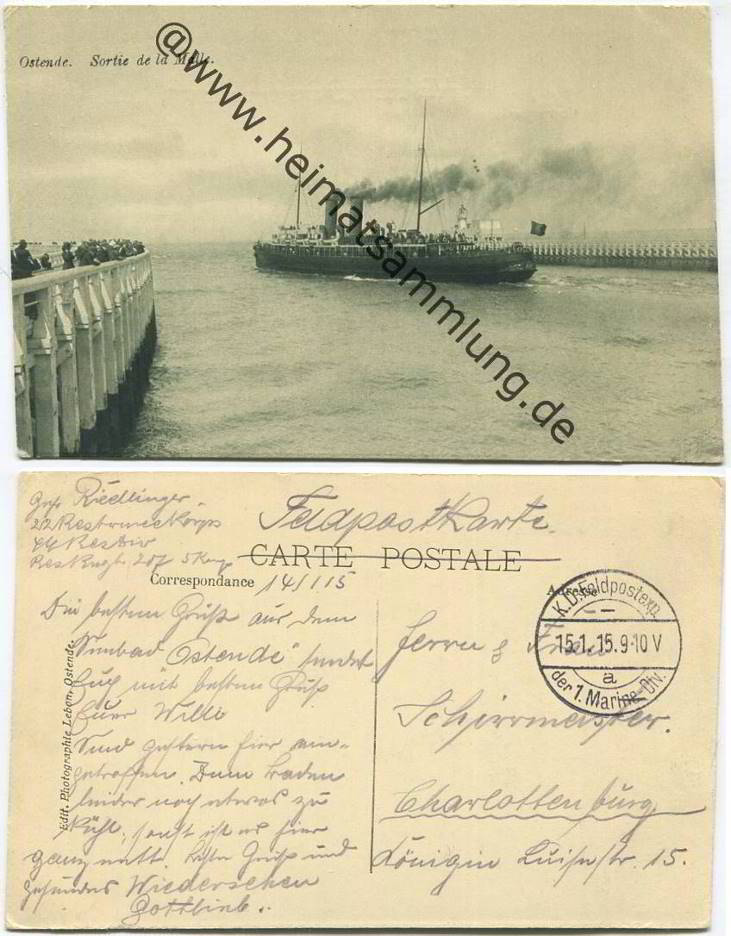 Ostende. Sortie de la Malle.
@www.heimatsammlung.de
Riedlinger
22 Reservmee Korps
44 ResDiv
Res Rngt. 207 5 Komp
Feldpostkarte.
CARTE POSTALE
Correspondance
14/1 15
Adresse
K.D.Feldpostexp.
15.1.15.9-10 V
a
der 1. Marine-Div.
Edit. Photographie Lebon, Ostende.
Die besten Grüße aus dem
Seebad "Ostende" sendet
Euch mit bestem Gruß
Euer Willi
Sind gestern hier ein-
getroffen. Zum baden
leider noch etwas zu
kühl, sonst ist es hier
ganz nett. Gruß und
gesundes Wiedersehen
Gottlieb..
Herrn & Frau
Schirrmeister.
Charlottenburg
Königin Luisestr. 15.